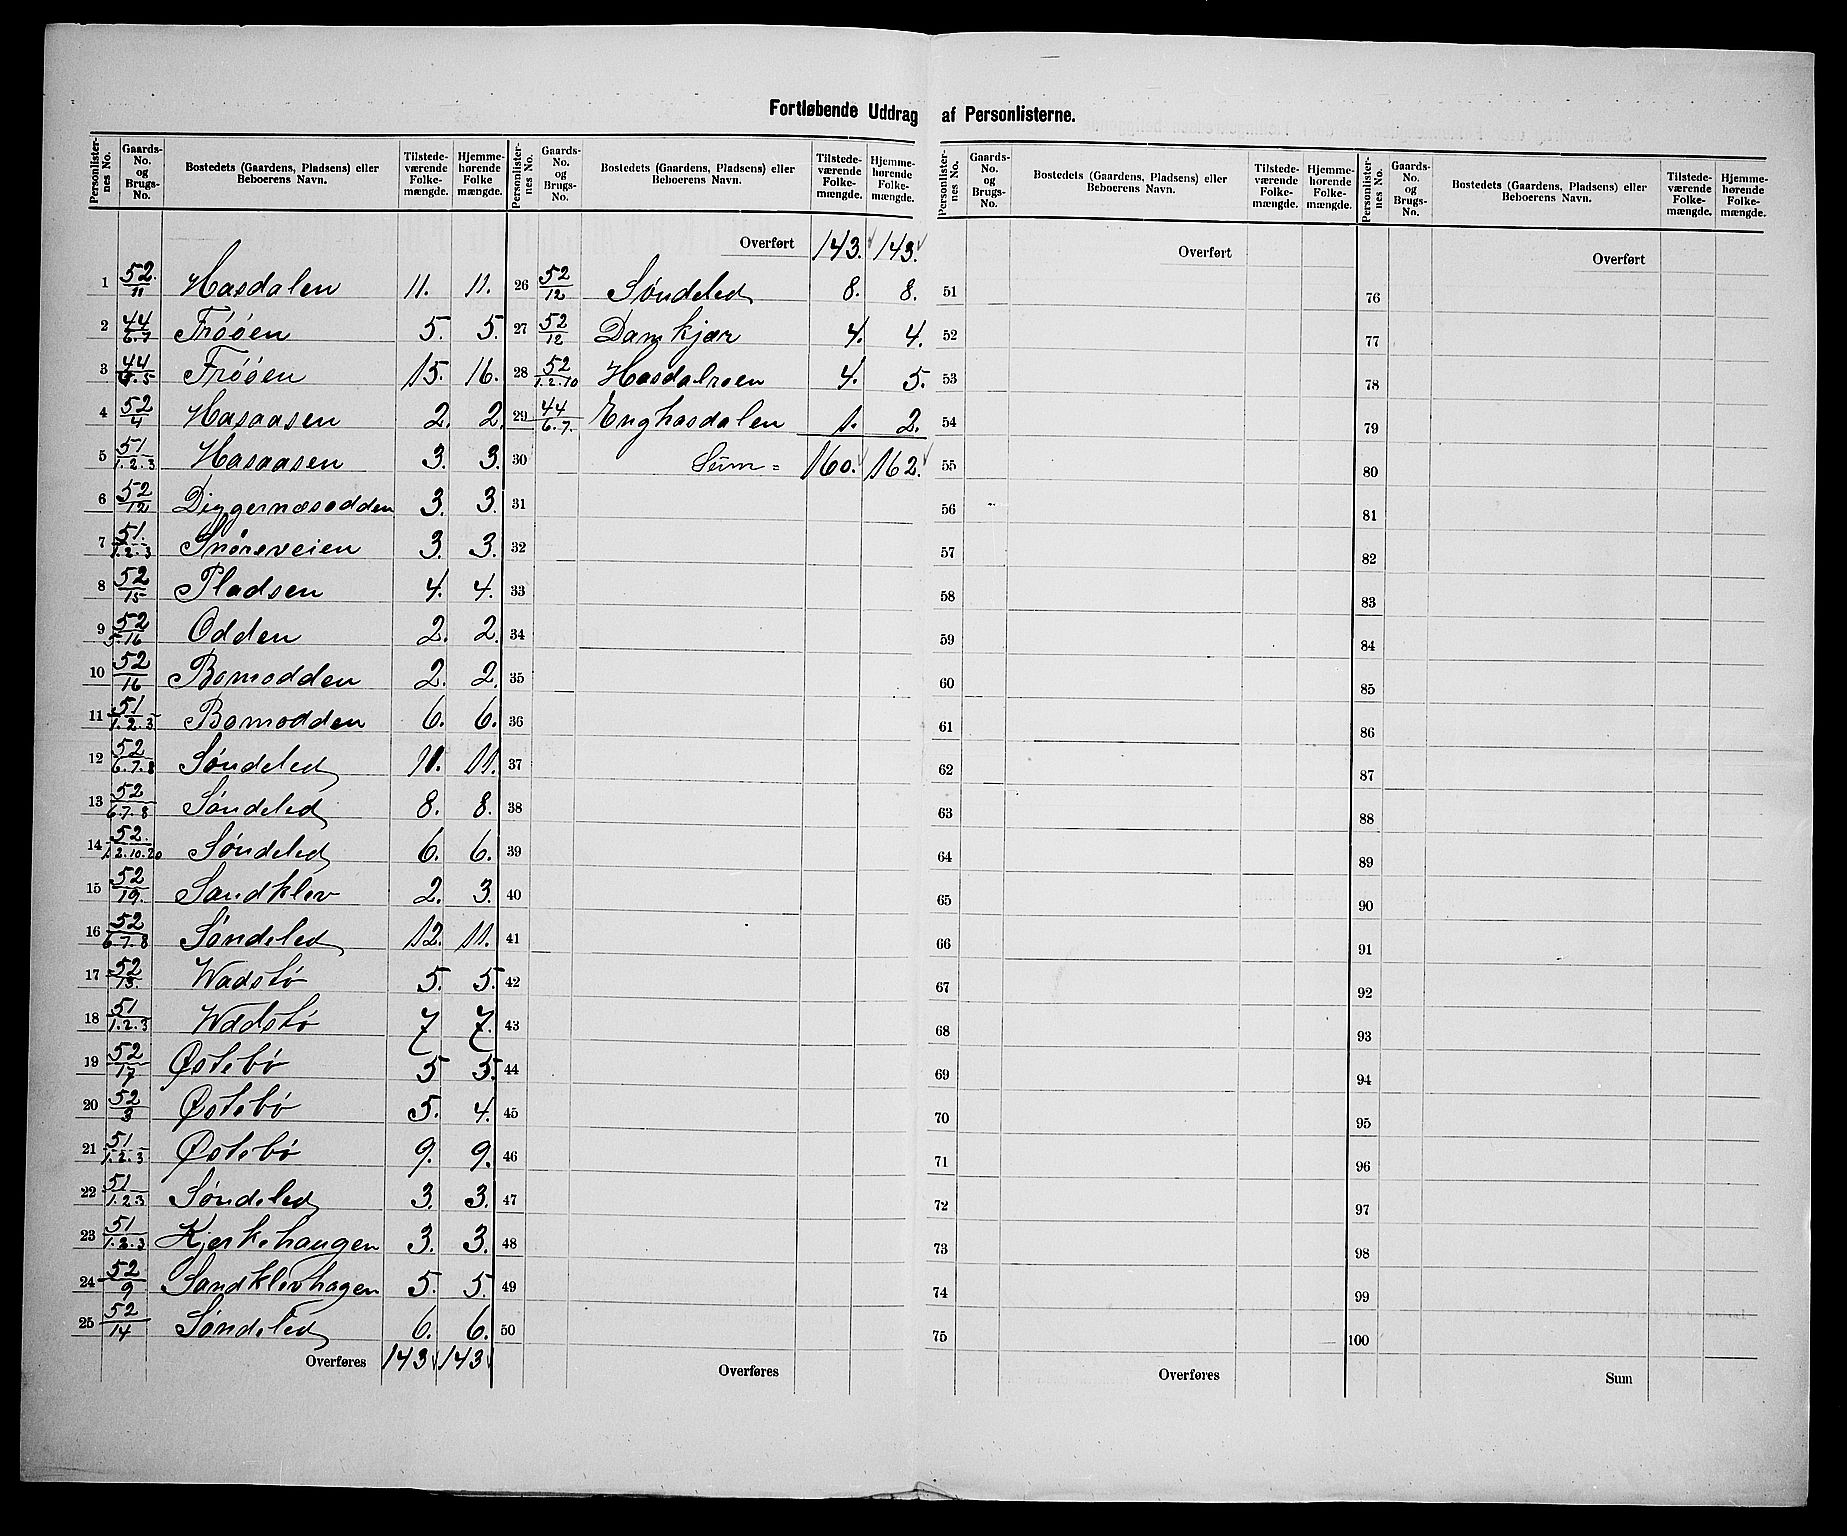 Fortløbende Uddrag af Personlisterne.
Personlisternes No. | Gaards-No. og Brugs-No. | Bostedets (Gaardens, Pladsens) eller Beboerens Navn. | Tilstedeværende Folkemængde. | Hjemmehørende Folkemængde.
1 52/11 Hasdalen 11. 11.
2 44/6.7 Frøøen 5. 5.
3 44/4.5 Frøøen 15. 16.
4 52/4 Hasaasen 2. 2.
5 51/1.2.3 Hasaasen 3. 3.
6 52/12 Diggernæsodden 3. 3.
7 51./1.2.3 Snøreveien 3. 3.
8 52/15 Pladsen 4. 4.
9 52/5.16 Odden 2. 2.
10 52/16 Bomodden 2. 2.
11 51/1.2.3 Bomodden 6. 6.
12 52/6.7.8 Søndeled 11. 11.
13 52/6.7.8 Søndeled 8. 8.
14 52./1.2.10.20 Søndeled 6. 6.
15 52/19. Sandklev 2. 3.
16 52/6.7.8 Søndeled 12. 11.
17 52/13. Wadstø 5. 5.
18 51/1.2.3 Wadstø 7 7.
19 52/17 Østebø 5 5.
20 52/3 Østebø 5. 4.
21 51/1.2.3 Østebø 9. 9.
22 51/1.2.3 Søndeled 3. 3.
23 51/1.2.3 Kjerkehaugen 3. 3.
24 52/9 Sandklevhagen 5. 5.
25 52/14 Søndeled 6. 6.
Overføres 143 143
Personlisternes No. | Gaards-No. og Brugs-No. | Bostedets (Gaardens, Pladsens) eller Beboerens Navn. | Tilstedeværende Folkemængde. | Hjemmehørende Folkemængde.
Overført 143. 143.
26 52/12 Søndeled 8. 8.
27 52/12 Damkjær 4. 4.
28 52/1.2.10 Hasdalroen 4. 5.
29 44/6.7. Enghasdalen 1. 2.
30 Sum = 160. 162.
31
32
33
34
35
36
37
38
39
40
41
42
43
44
45
46
47
48
49
50
Overføres
Personlisternes No. | Gaards-No. og Brugs-No. | Bostedets (Gaardens, Pladsens) eller Beboerens Navn. | Tilstedeværende Folkemængde. | Hjemmehørende Folkemængde.
Overført
51
52
53
54
55
56
57
58
59
60
61
62
63
64
65
66
67
68
69
70
71
72
73
74
75
Overføres
Personlisternes No. | Gaards-No. og Brugs-No. | Bostedets (Gaardens, Pladsens) eller Beboerens Navn. | Tilstedeværende Folkemængde. | Hjemmehørende Folkemængde.
Overført
76
77
78
79
80
81
82
83
84
85
86
87
88
89
90
91
92
93
94
95
96
97
98
99
100
Sum